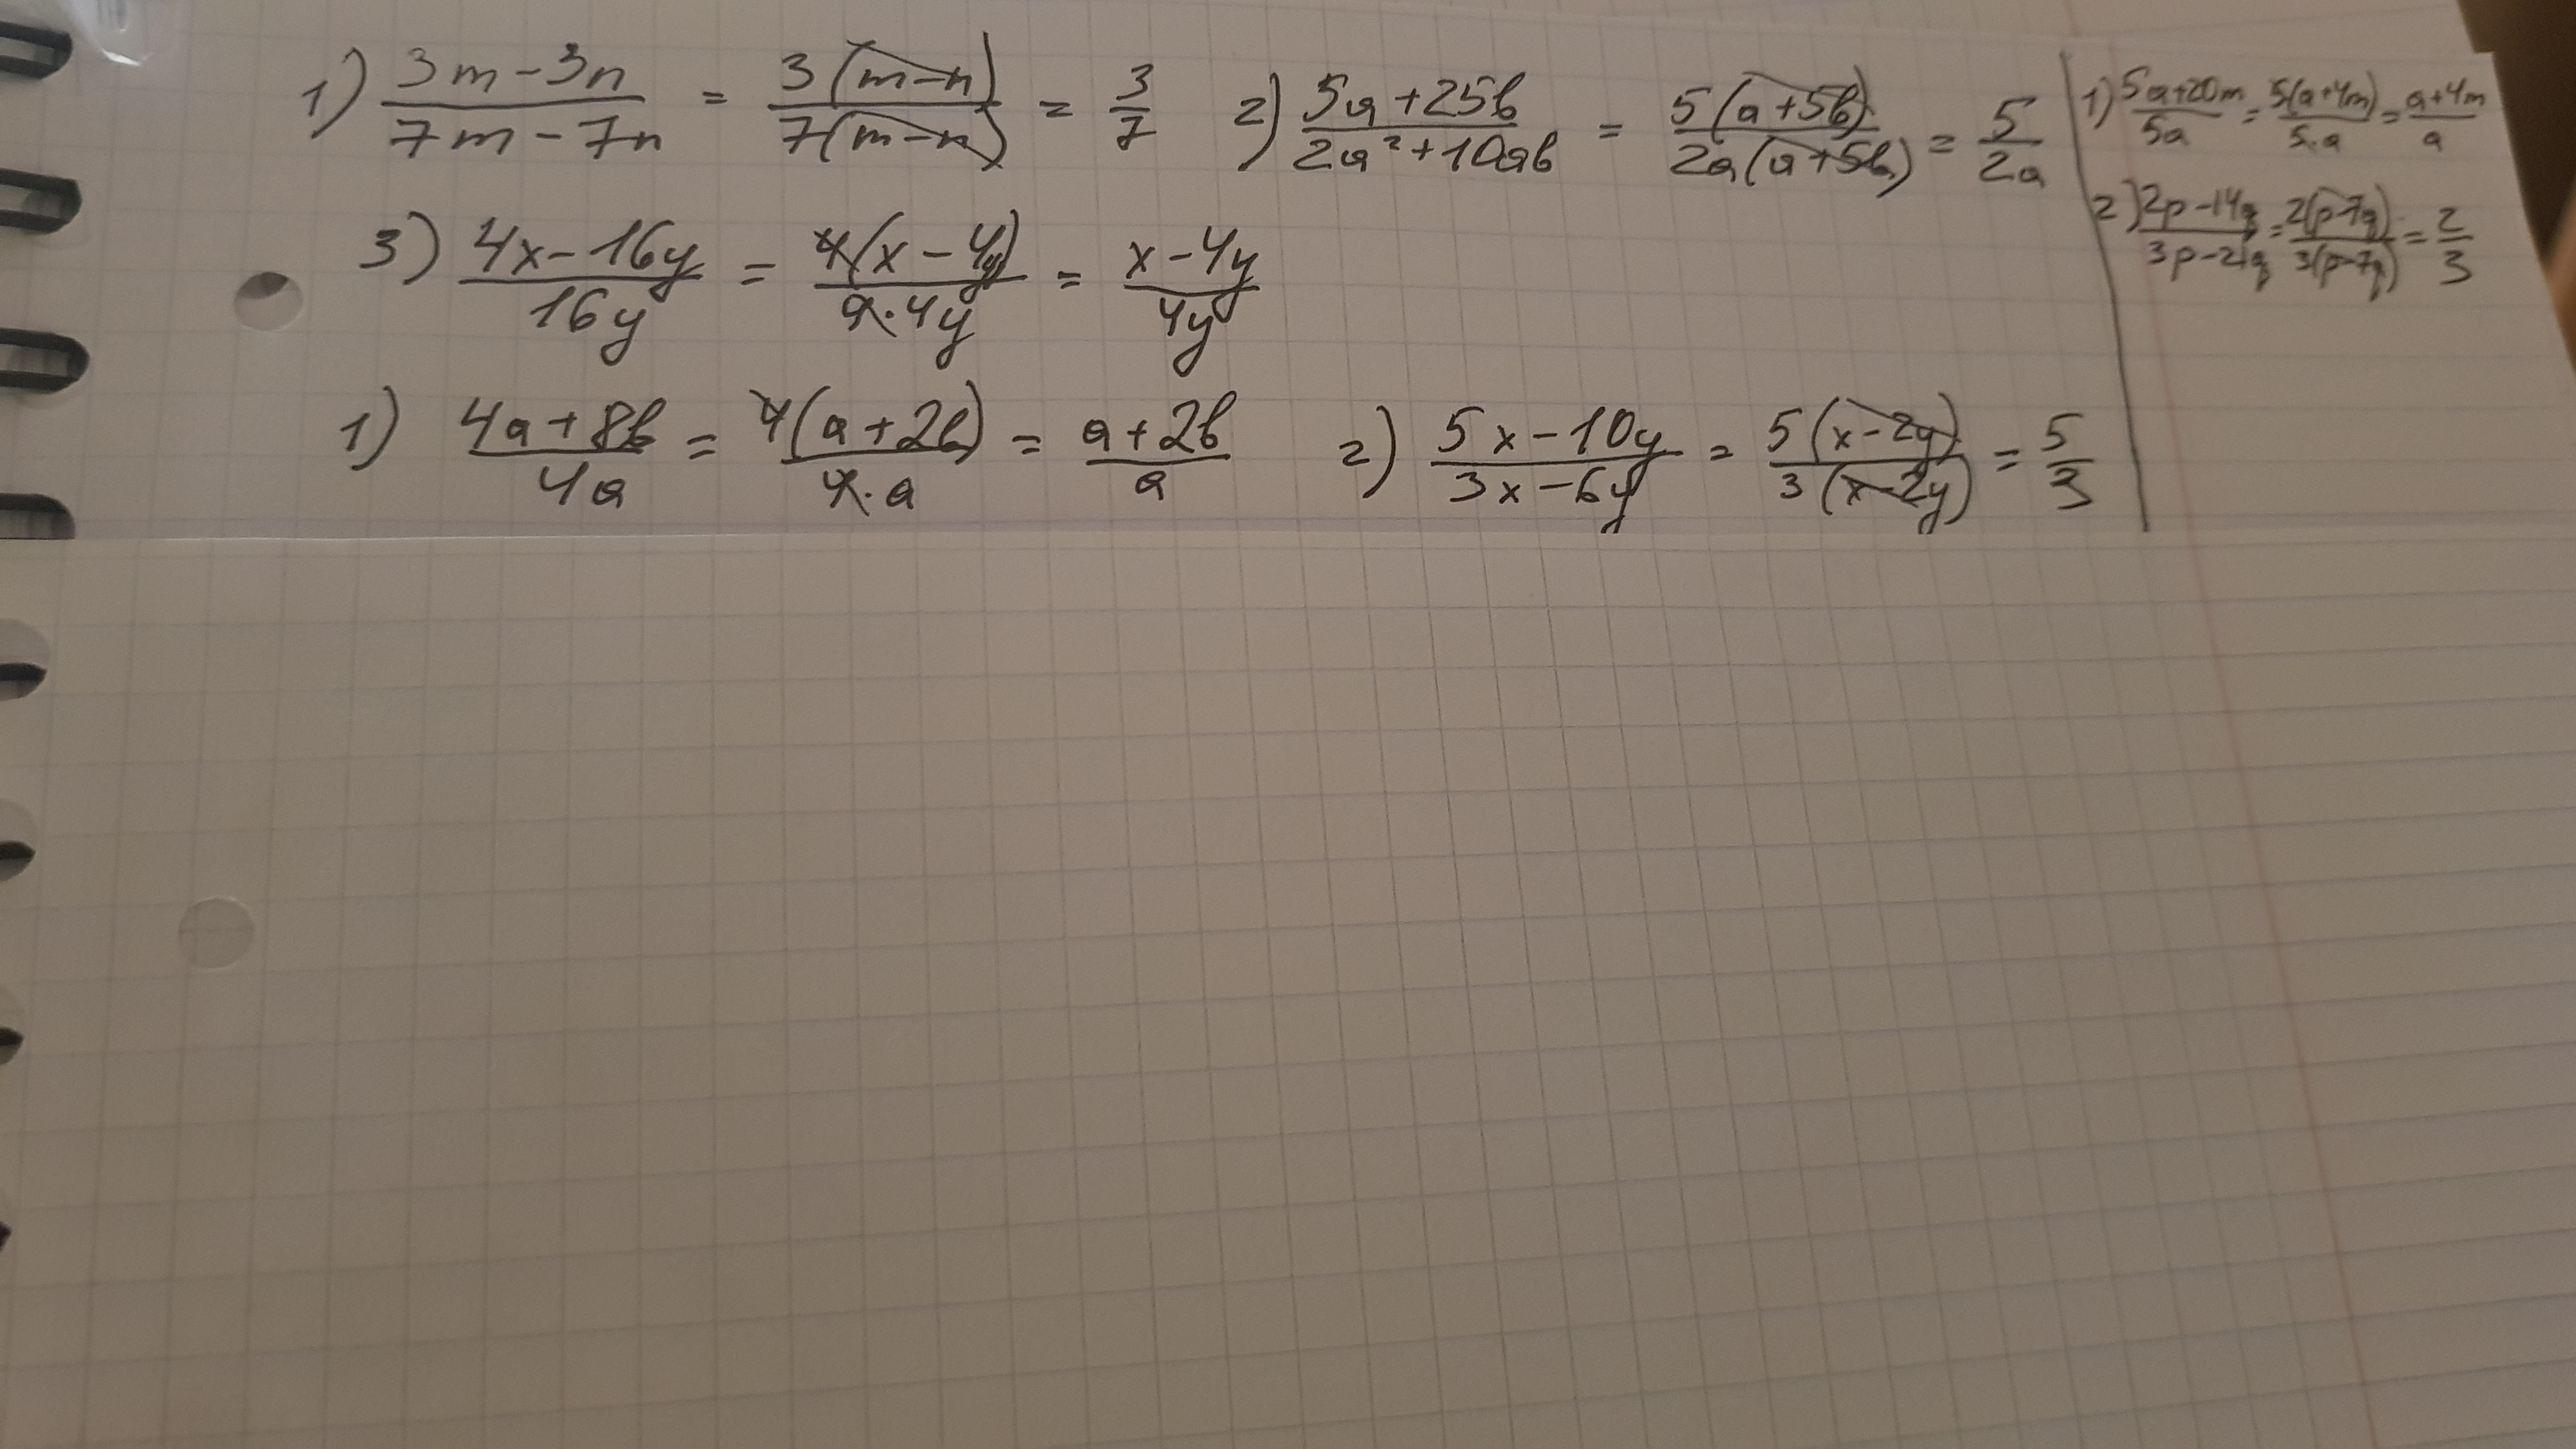 1) (3m-3n)/(7m-7n) = 3(m-n)/7(m-n) = 3/7
2) (5a+25b)/(2a²+10ab) = 5(a+5b)/2a(a+5b) = 5/2a
3) (4x-16y)/16y = 4(x-4y)/4·4y = (x-4y)/4y
1) (4a+8b)/4a = 4(a+2b)/4·a = (a+2b)/a
2) (5x-10y)/(3x-6y) = 5(x-2y)/3(x-2y) = 5/3
1) (5a+20m)/5a = 5(a+4m)/5·a = (a+4m)/a
2) (2p-14q)/(3p-21q) = 2(p-7q)/3(p-7q) = 2/3